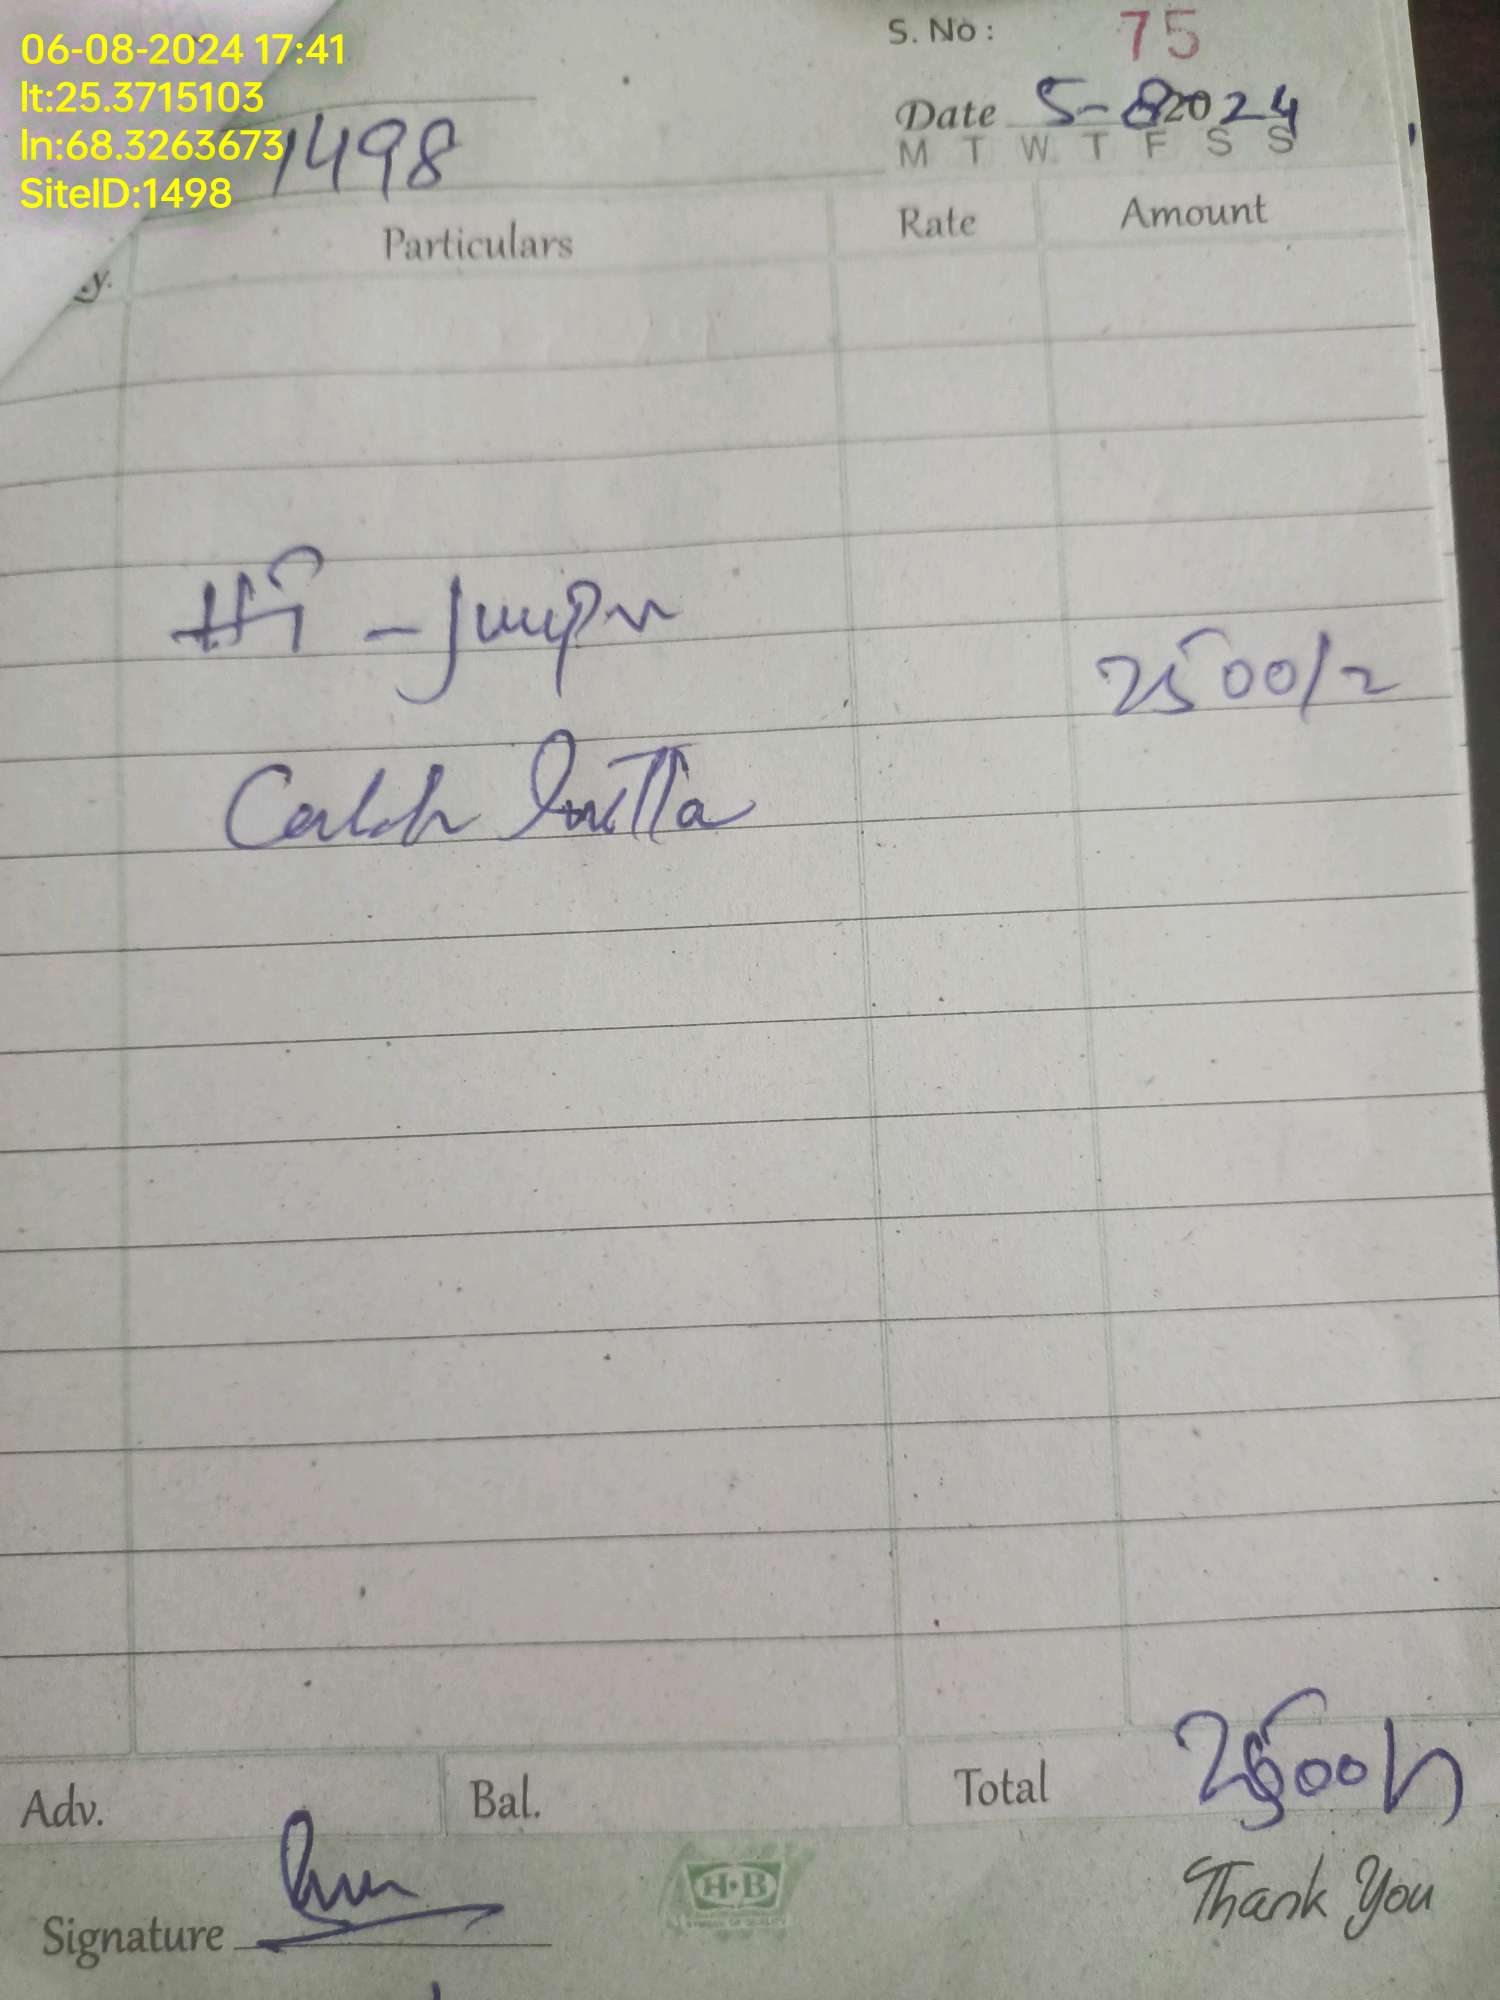 06-08-2024 17:41
lt:25.3715103
ln:68.3263673
SiteID:1498
S. No : 75
Date 5-8 2024
M T W T F S S
1498
y. Particulars Rate Amount
2500/
Adv. Bal. Total 2500/
Signature
H·B
Thank You